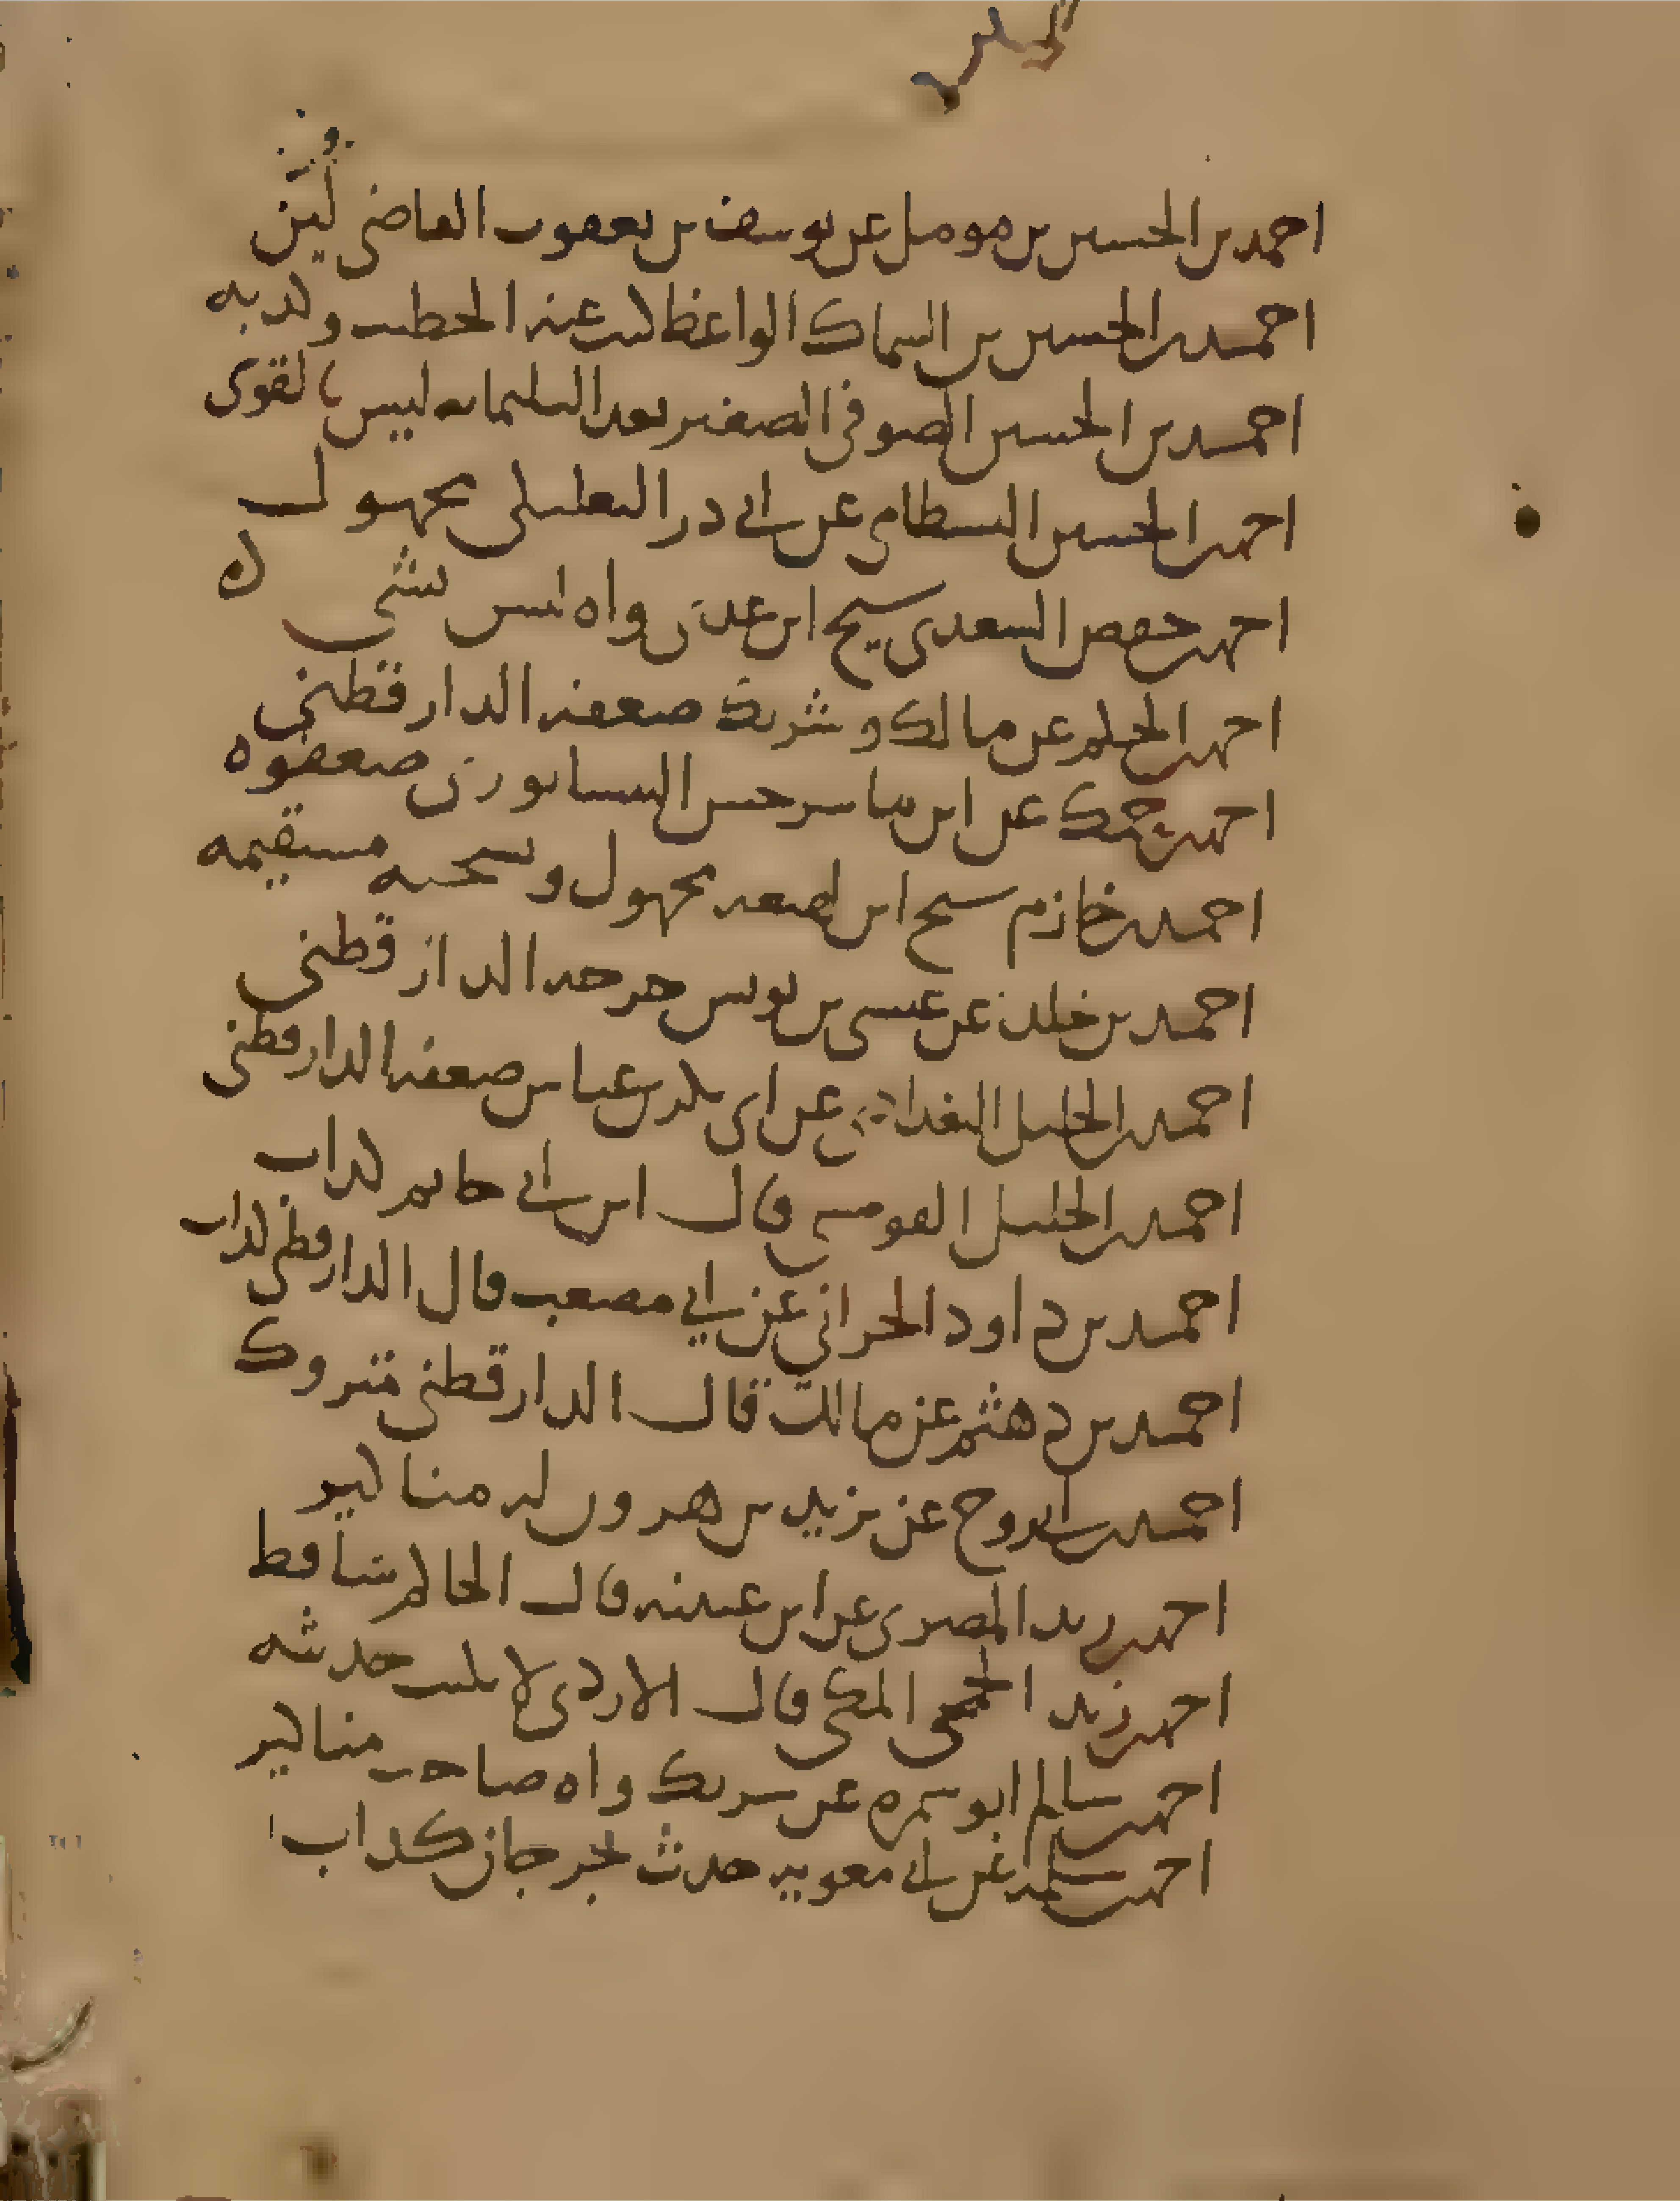 احمد بن الحسين بن مومل عن يوسف بن يعقوب القاضي لين
احمد بن الحسين بن السماك الواعظ كتب عنه الخطيب وكذبه
احمد بن الحسين الصوفي الصغير بعد الثلثمايه ليس بالقوى
احمد بن الحسين البسطامي عن ابي ذر البعلبكي مجهول
احمد بن حفص السعدي شيخ ابن عدي واه ليس بشي
احمد بن الحكم عن مالك وشريك ضعفه الدارقطني
احمد بن حمك عن ابن ماسرجس النيسابوري ضعفوه
احمد بن خازم شيخ ابن لهيعه مجهول ونسخته مستقيمه
احمد بن خلد عن عيسى بن يونس جرحه الدارقطني
احمد بن الخليل البغدادي عن ابي بكر بن عياش ضعفه الدارقطني
احمد بن الخليل القومسي قال ابن ابي حاتم كذاب
احمد بن داود الحراني عن ابي مصعب قال الدارقطني كذاب
احمد بن دهثم عن مالك قال الدارقطني متروك
احمد بن ابي روح عن يزيد بن هرون له مناكير
احمد بن زيد المصري عن ابن عيينه قال الحاكم ساقط
احمد بن زيد الجمحي المكي قال الازدي لا يكتب حديثه
احمد بن سالم ابو سمره عن شريك واه صاحب مناكير
احمد بن سلمه عن ابي معويه حدث بجرجان كذاب